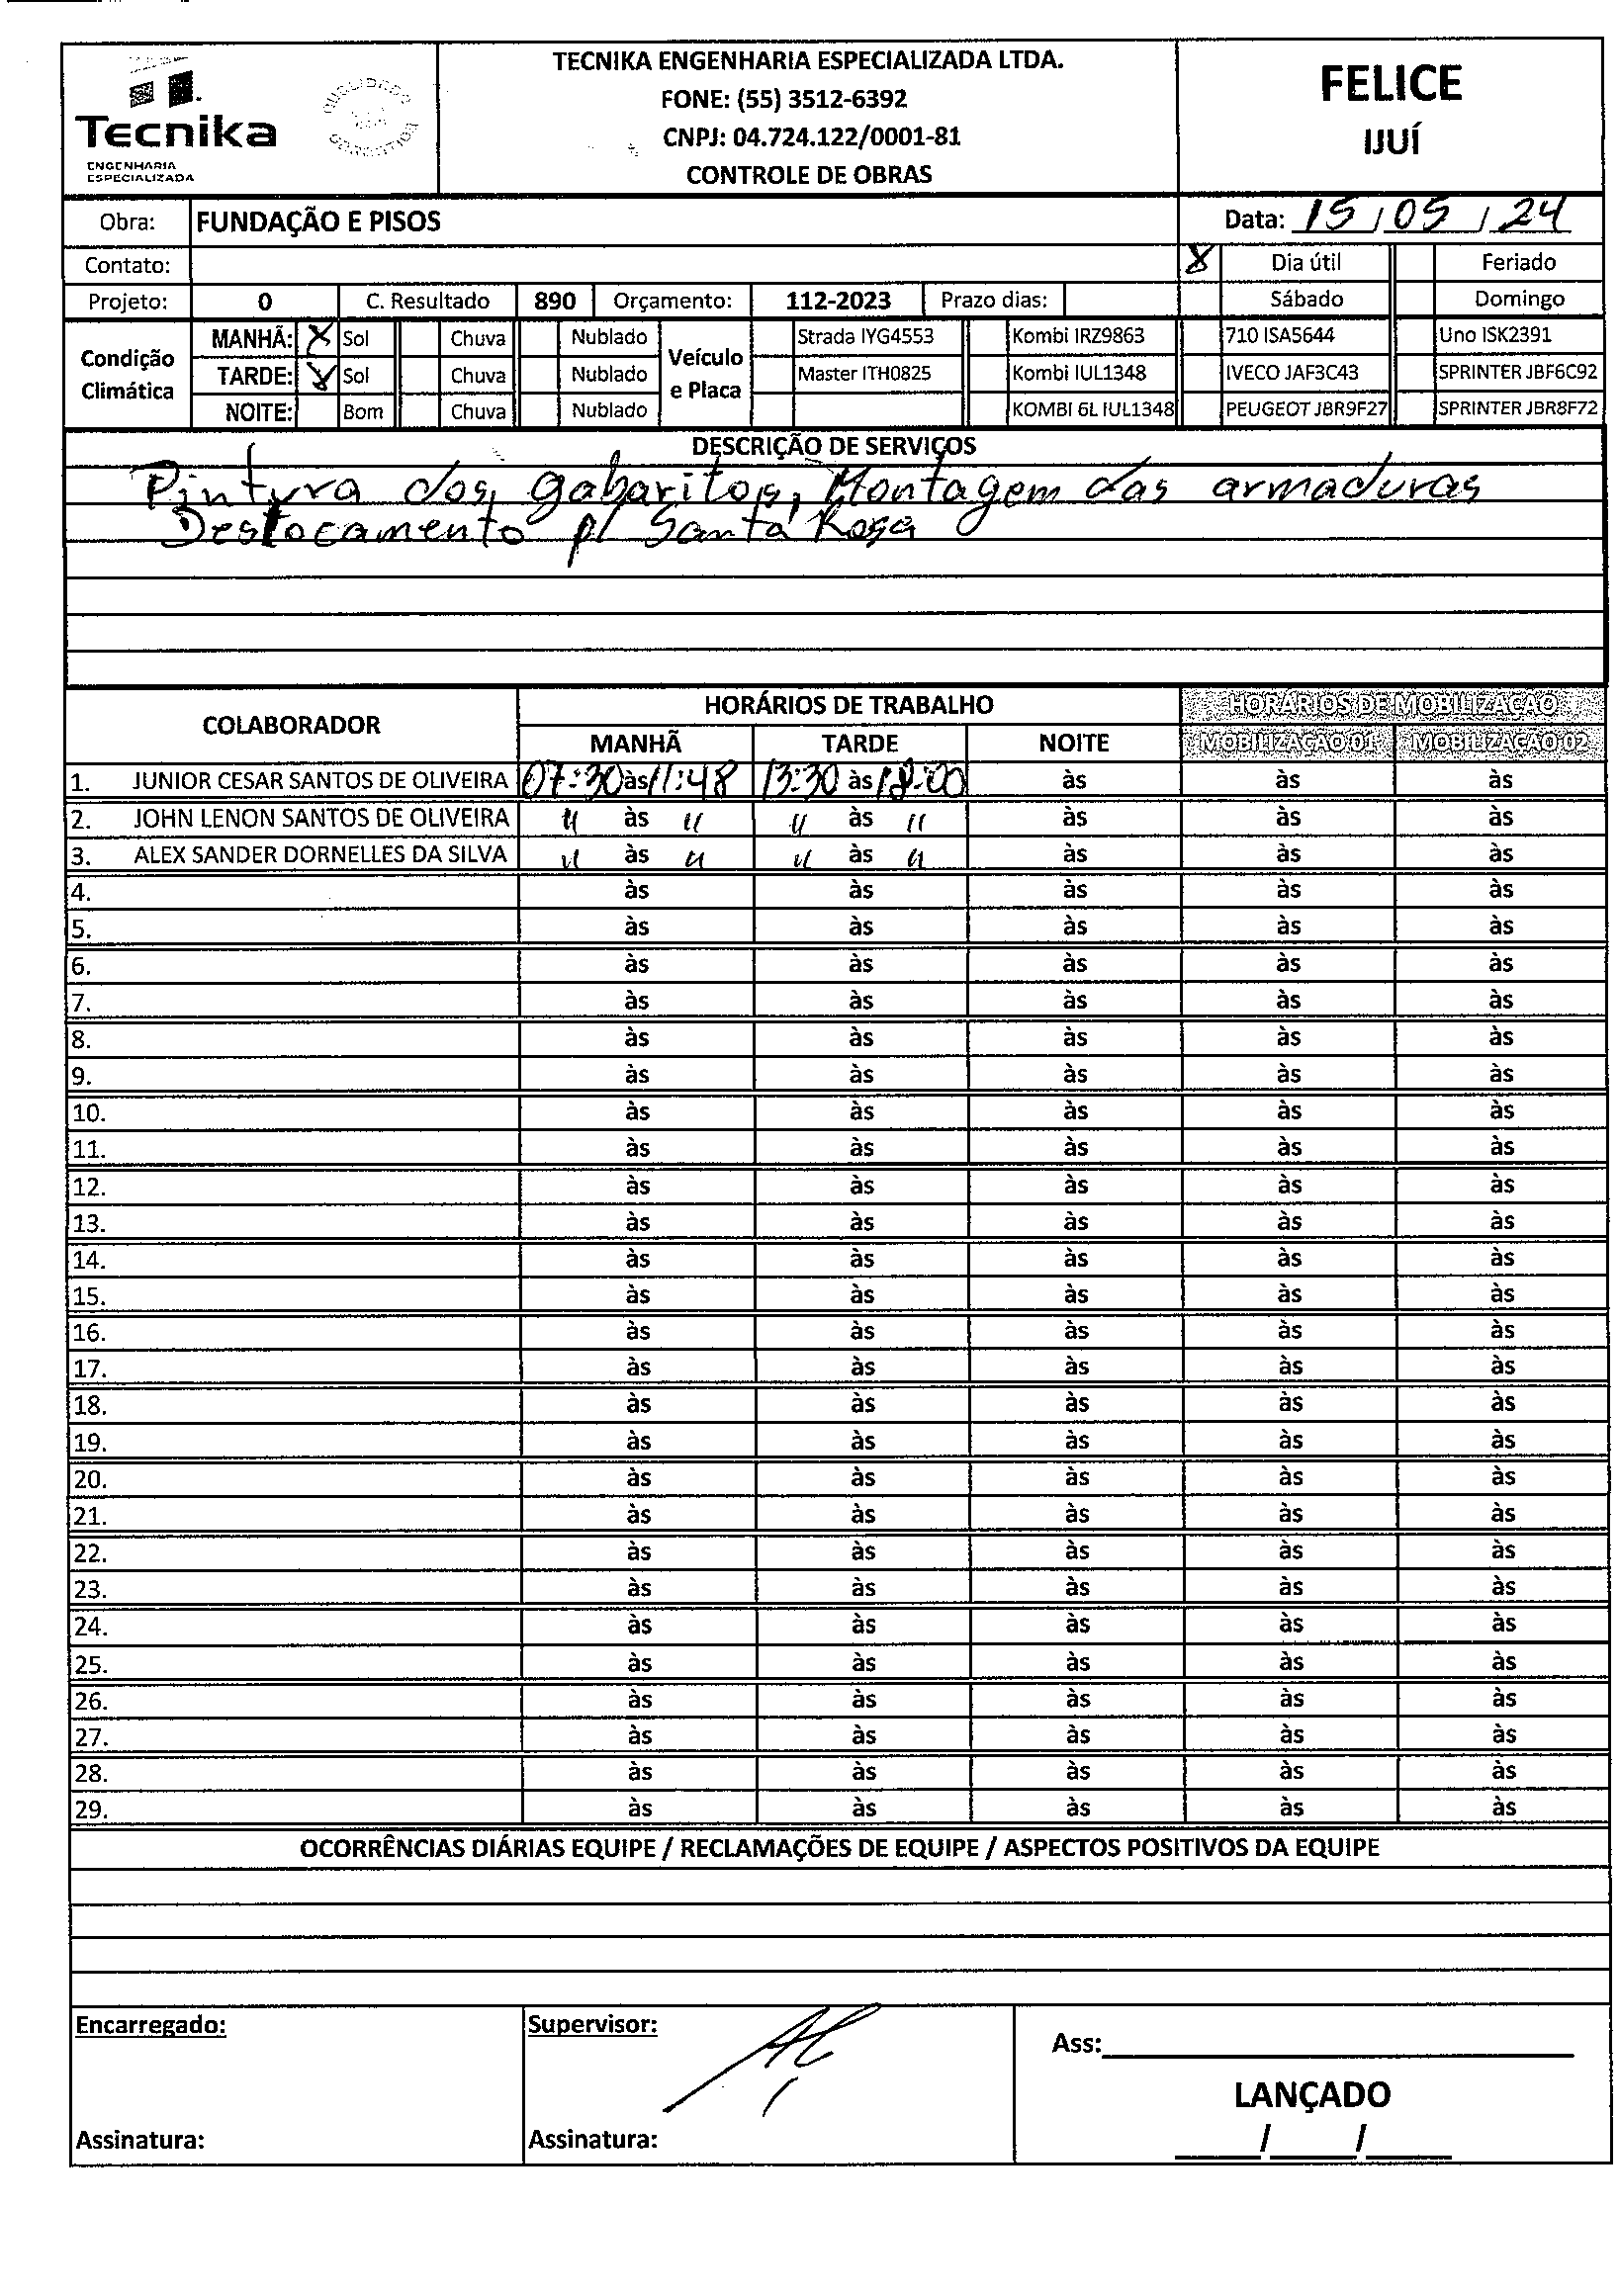 Tecnika
ENGENHARIA
ESPECIALIZADA
TECNIKA ENGENHARIA ESPECIALIZADA LTDA.
FONE: (55) 3512-6392
CNPJ: 04.724.122/0001-81
CONTROLE DE OBRAS
FELICE
IJUÍ
Obra: FUNDAÇÃO E PISOS Data: 15/05/24
Contato: X Dia útil Feriado
Projeto: 0 C. Resultado 890 Orçamento: 112-2023 Prazo dias: Sábado Domingo
Condição Climática
MANHÃ: X Sol Chuva Nublado
TARDE: X Sol Chuva Nublado
NOITE: Bom Chuva Nublado
Veículo e Placa
Strada IYG4553 Kombi IRZ9863 710 ISA5644 Uno ISK2391
Master ITH0825 Kombi IUL1348 IVECO JAF3C43 SPRINTER JBF6C92
KOMBI 6L IUL1348 PEUGEOT JBR9F27 SPRINTER JBR8F72
DESCRIÇÃO DE SERVIÇOS
Pintura dos gabaritos, Montagem das armaduras
Deslocamento p/ Santa Rosa
COLABORADOR HORÁRIOS DE TRABALHO HORÁRIOS DE MOBILIZAÇÃO
MANHÃ TARDE NOITE MOBILIZAÇÃO 01 MOBILIZAÇÃO 02
1. JUNIOR CESAR SANTOS DE OLIVEIRA 07:30 às 11:48 13:30 às 18:00 às às às
2. JOHN LENON SANTOS DE OLIVEIRA " às " " às " às às às
3. ALEX SANDER DORNELLES DA SILVA " às " " às " às às às
4. às às às às às
5. às às às às às
6. às às às às às
7. às às às às às
8. às às às às às
9. às às às às às
10. às às às às às
11. às às às às às
12. às às às às às
13. às às às às às
14. às às às às às
15. às às às às às
16. às às às às às
17. às às às às às
18. às às às às às
19. às às às às às
20. às às às às às
21. às às às às às
22. às às às às às
23. às às às às às
24. às às às às às
25. às às às às às
26. às às às às às
27. às às às às às
28. às às às às às
29. às às às às às
OCORRÊNCIAS DIÁRIAS EQUIPE / RECLAMAÇÕES DE EQUIPE / ASPECTOS POSITIVOS DA EQUIPE
Encarregado:
Assinatura:
Supervisor:
Assinatura:
Ass:
LANÇADO
/ /